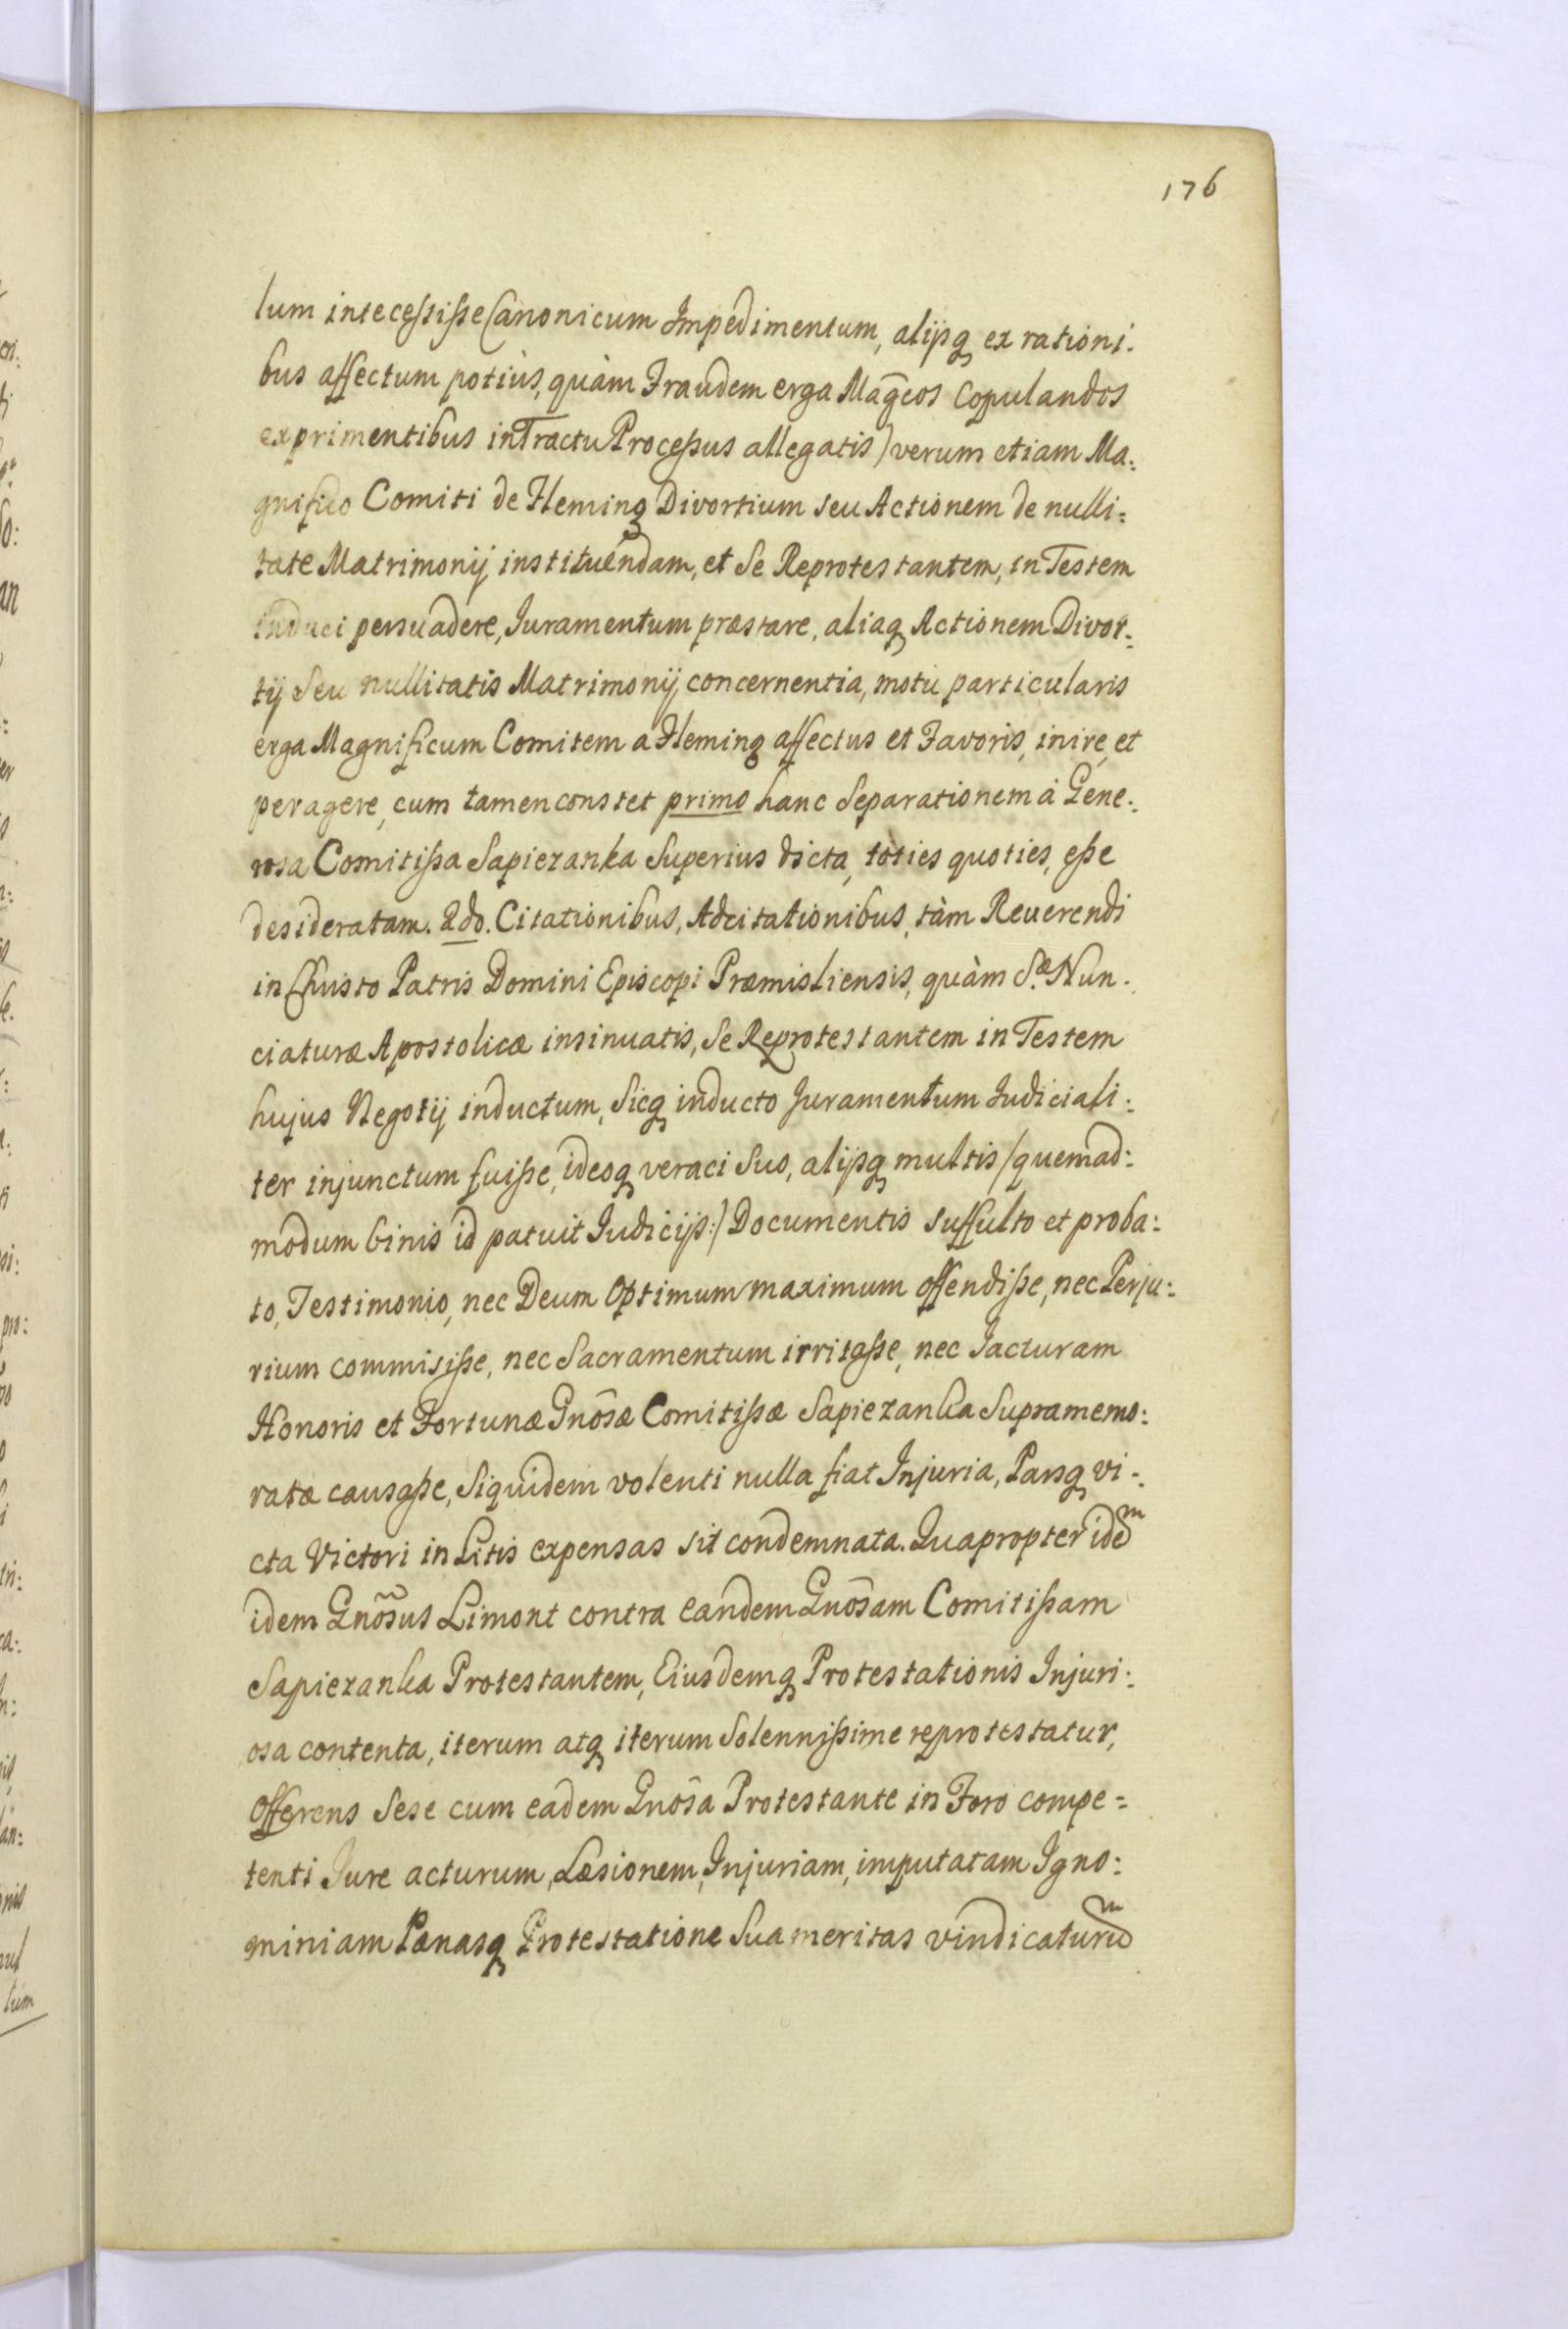 176
lum intecessisse Canonicum Impedimentum, alijsq ex rationi:
bus affectum potiùs, quàm Fraudem erga Mag̃cos Copulandos
exprimentibus in Tractu Processus allegatis) verum etiam Ma:
gnifico Comiti de Fleming Divortium seu Actionem de nulli:
tate Matrimonij instituendam, et Se Reprotestantem, in Testem
induci persuadere, Iuramentum præstare, aliaq Actionem Divor:
tij Seu nullitatis Matrimonij concernentia, motu particularis
erga Magnificum Comitem a Fleming affectus et Favoris, inire, et
peragere, cum tamen constet primo hanc Separationem à Gene:
rosa Comitissa Sapiezanka Superius dicta, toties quoties, esse
desideratam. 2do. Citationibus, Adcitationibus, tàm Reuerendi
in Christo Patris Domini Episcopi Præmisliensis, quàm S.æ Nun:
ciaturæ Apostolicæ insinuatis, Se Reprotestantem in Testem
hujus Negotij inductum, Sicq inducto Juramentum Judiciali:
ter injunctum fuisse, ideoq veraci Suo, alijsq multis /quemad:
modum binis id patuit Iudicijs:/ Documentis suffulto et proba:
to, Testimonio, nec Deum Optimum maximum offendisse, nec Perju:
rium commisisse, nec Sacramentum irritasse, nec Jacturam
Honoris et Fortunæ Gnõsæ Comitissæ Sapiezanka Supramemo:
ratæ causasse, Siquidem volenti nulla fiat Injuria, Parsq vi:
cta Victori in Litis expensas sit condemnata. Quapropter idẽm
idem Gnõsus Limont contra eandem Gnõsam Comitissam
Sapiezanka Protestantem, Eiusdemq Protestationis Injuri:
osa contenta, iterum atq iterum Solennissime reprotestatur,
Offerens Sese cum eadem Gnõsa Protestante in Foro compe=
tenti Jure acturum, Læsionem, Injuriam, imputatam Igno:
miniam Pænasq Protestatione Sua meritas vindicaturũm